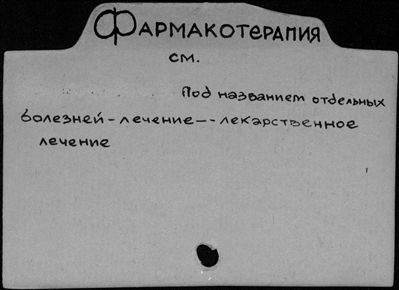 Фармакотерапия
см.
Под названием отдельных
болезней - лечение -- лекарственное
лечение